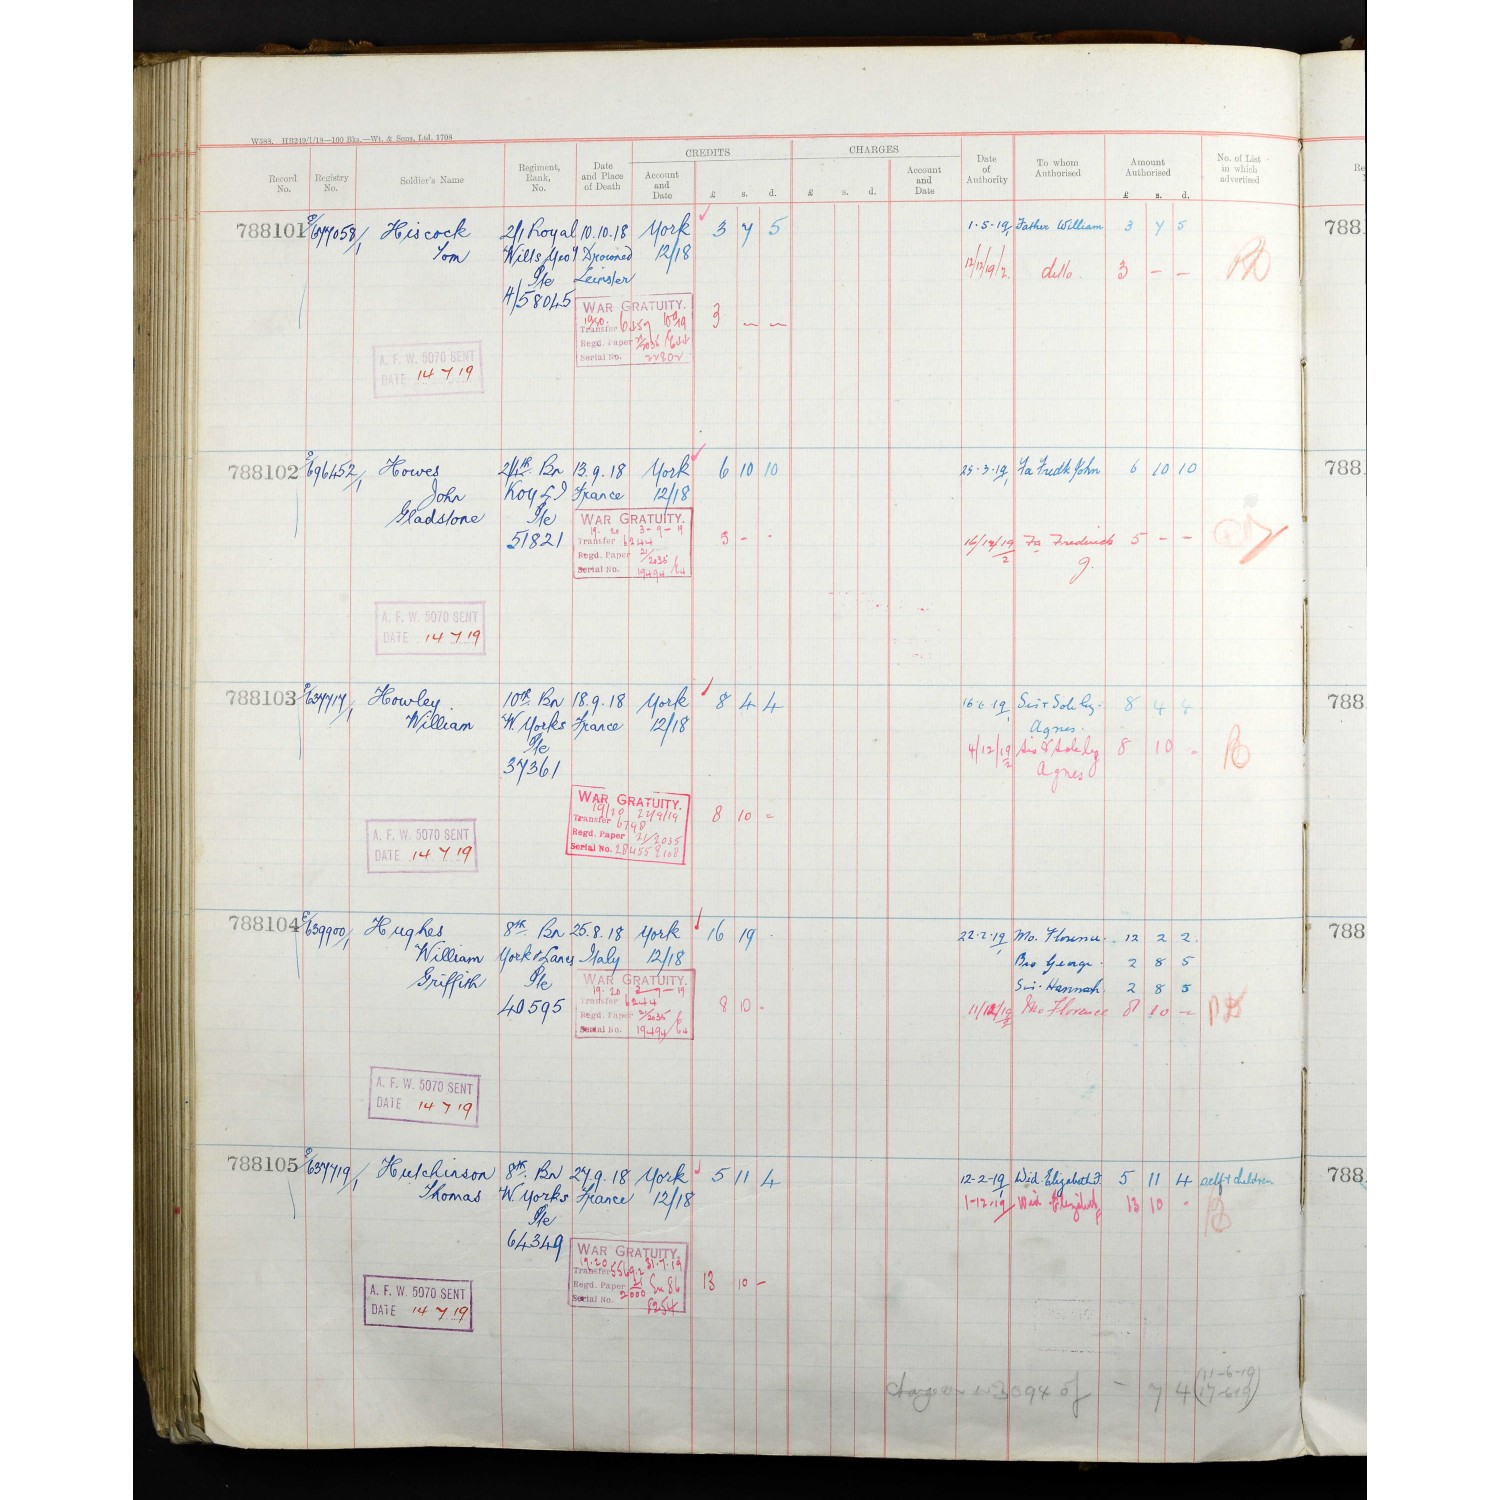 W588. HB249/1/18—100 Bks.—Wt. & Sons, Ltd. 1708
CREDITS CHARGES
Record No. Registry No. Soldier's Name Regiment, Rank, No. Date and Place of Death Account and Date £ s. d. £ s. d. Account and Date Date of Authority To whom Authorised Amount Authorised £ s. d. No. of List in which advertised
788101 E/677058/1 Hiscock 2/1 Royal 10.10.18 York 3 7 5 1.5.19/1 Father William 3 7 5
Tom Wilts Yeo Drowned 12/18
Pte Leinster 12/12/19/2 ditto 3 - -
H/58045
WAR GRATUITY.
19/20
Transfer 6459 3 - -
Regd. Paper 21/2035
Serial No. 22802
A. F. W. 5070 SENT
DATE 14 7 19
788102 E/696452/1 Howes 2/4th Bn 13.9.18 York 6 10 10 25.3.19/1 Fa Fredk John 6 10 10
John Koy LI France 12/18
Gladstone Pte
51821
WAR GRATUITY.
19.20 3-9-19
Transfer 6244 5 - - 16/12/19/2 Fa Frederick J. 5 - -
Regd. Paper 21/2035
Serial No. 19494/64
A. F. W. 5070 SENT
DATE 14 7 19
788103 E/637717/1 Howley 10th Bn 18.9.18 York 8 4 4 16.6.19/1 Sis & Sole Leg. 8 4 4
William W. Yorks France 12/18 Agnes.
Pte 4/12/19/2 Sis & Sole Leg 8 10 -
37361 Agnes
WAR GRATUITY.
19/20 22/9/19
Transfer 6798 8 10 -
Regd. Paper 21/2035
Serial No. 28455 2108
A. F. W. 5070 SENT
DATE 14 7 19
788104 E/639900/1 Hughes 8th Bn 25.8.18 York 16 19 - 22.2.19/1 Mo. Florence. 12 2 2
William York & Lancs Italy 12/18 Bro George. 2 8 5
Griffith Pte Sis. Hannah. 2 8 5
40595 11/12/19/2 Mo Florence 8 10 -
WAR GRATUITY.
19.20 2-9-19
Transfer 6244 8 10 -
Regd. Paper 21/2035
Serial No. 19494/64
A. F. W. 5070 SENT
DATE 14 7 19
788105 E/637719/1 Hutchinson 8th Bn 27.9.18 York 5 11 4 12-2-19/1 Wid. Elizabeth F 5 11 4 self & children
Thomas W. Yorks France 12/18 1-12-19/2 Wid Elizabeth F 13 10 -
Pte
64349
WAR GRATUITY.
19.20 31.7.19
Transfer 5569.2 13 10 -
Regd. Paper 21/2000
Serial No. 8254
A. F. W. 5070 SENT
DATE 14 7 19
3094 of - 7 4 (11-6-19
17-6-19)
788
788
788
788
788